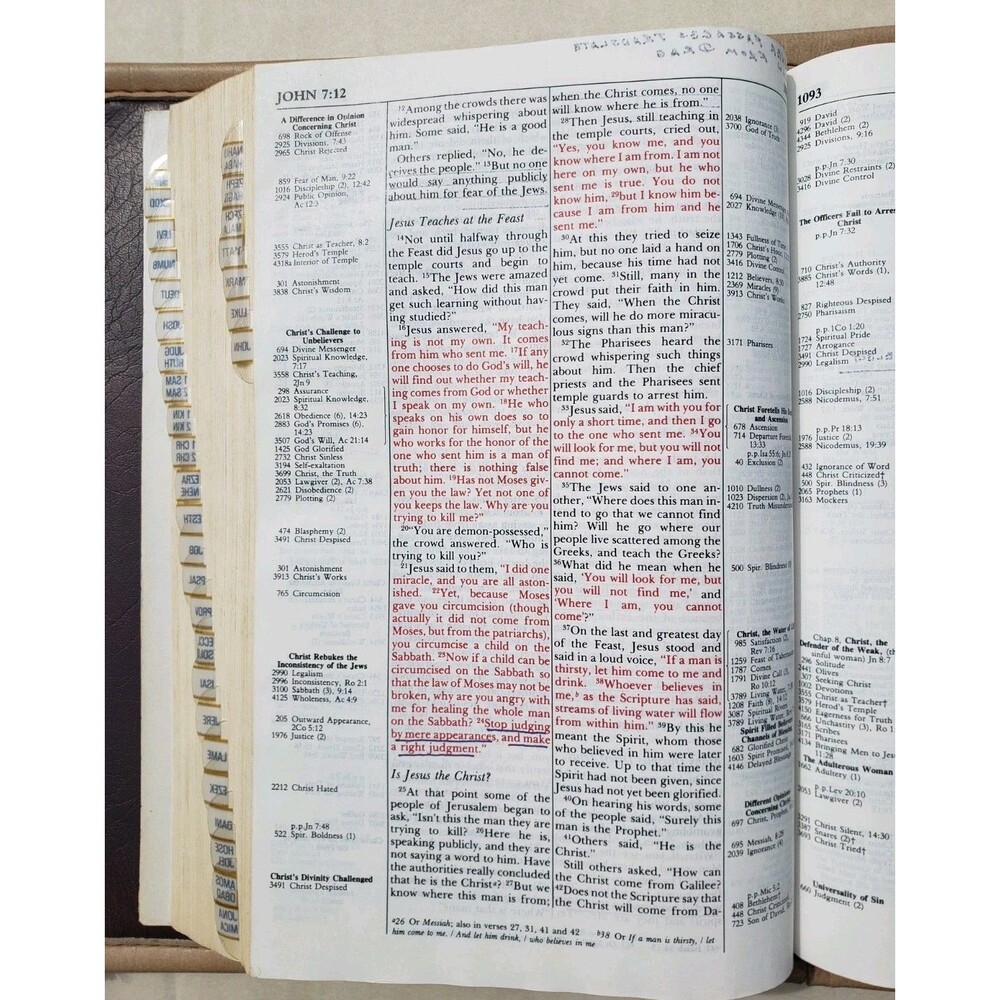 JOHN 7:12
A Difference in Opinion
Concerning Christ
698 Rock of Offense
2925 Divisions, 7:43
2965 Christ Rejected
859 Fear of Man, 9:22
1016 Discipleship (2), 12:42
2924 Public Opinion,
Ac 12:3
3555 Christ as Teacher, 8:2
3579 Herod's Temple
4318a Interior of Temple
301 Astonishment
3838 Christ's Wisdom
Christ's Challenge to
Unbelievers
694 Divine Messenger
2023 Spiritual Knowledge,
7:17
3558 Christ's Teaching,
2Jn 9
298 Assurance
2023 Spiritual Knowledge,
8:32
2618 Obedience (6), 14:23
2883 God's Promises (6),
14:23
3507 God's Will, Ac 21:14
1425 God Glorified
2732 Christ Sinless
3194 Self-exaltation
3699 Christ, the Truth
2053 Lawgiver (2), Ac 7:38
2621 Disobedience (2)
2779 Plotting (2)
474 Blasphemy (2)
3491 Christ Despised
301 Astonishment
3913 Christ's Works
765 Circumcision
Christ Rebukes the
Inconsistency of the Jews
2990 Legalism
2996 Inconsistency, Ro 2:1
3100 Sabbath (3), 9:14
4125 Wholeness, Ac 4:9
205 Outward Appearance,
2Co 5:12
1976 Justice (2)
2212 Christ Hated
p.p. Jn 7:48
522 Spir. Boldness (1)
Christ's Divinity Challenged
3491 Christ Despised
12Among the crowds there was
widespread whispering about
him. Some said, "He is a good
man."
Others replied, "No, he de-
ceives the people." 13But no one
would say anything publicly
about him for fear of the Jews.
Jesus Teaches at the Feast
14Not until halfway through
the Feast did Jesus go up to the
temple courts and begin to
teach. 15The Jews were amazed
and asked, "How did this man
get such learning without hav-
ing studied?"
16Jesus answered, "My teach-
ing is not my own. It comes
from him who sent me. 17If any
one chooses to do God's will, he
will find out whether my teach-
ing comes from God or whether
I speak on my own. 18He who
speaks on his own does so to
gain honor for himself, but he
who works for the honor of the
one who sent him is a man of
truth; there is nothing false
about him. 19Has not Moses giv-
en you the law? Yet not one of
you keeps the law. Why are you
trying to kill me?"
20"You are demon-possessed,"
the crowd answered. "Who is
trying to kill you?"
21Jesus said to them, "I did one
miracle, and you are all aston-
ished. 22Yet, because Moses
gave you circumcision (though
actually it did not come from
Moses, but from the patriarchs),
you circumcise a child on the
Sabbath. 23Now if a child can be
circumcised on the Sabbath so
that the law of Moses may not be
broken, why are you angry with
me for healing the whole man
on the Sabbath? 24Stop judging
by mere appearances, and make
a right judgment."
Is Jesus the Christ?
25At that point some of the
people of Jerusalem began to
ask, "Isn't this the man they are
trying to kill? 26Here he is,
speaking publicly, and they are
not saying a word to him. Have
the authorities really concluded
that he is the Christa? 27But we
know where this man is from;
when the Christ comes, no one
will know where he is from."
28Then Jesus, still teaching in
the temple courts, cried out,
"Yes, you know me, and you
know where I am from. I am not
here on my own, but he who
sent me is true. You do not
know him, 29but I know him be-
cause I am from him and he
sent me."
30At this they tried to seize
him, but no one laid a hand on
him, because his time had not
yet come. 31Still, many in the
crowd put their faith in him.
They said, "When the Christ
comes, will he do more miracu-
lous signs than this man?"
32The Pharisees heard the
crowd whispering such things
about him. Then the chief
priests and the Pharisees sent
temple guards to arrest him.
33Jesus said, "I am with you for
only a short time, and then I go
to the one who sent me. 34You
will look for me, but you will not
find me; and where I am, you
cannot come."
35The Jews said to one an-
other, "Where does this man in-
tend to go that we cannot find
him? Will he go where our
people live scattered among the
Greeks, and teach the Greeks?
36What did he mean when he
said, 'You will look for me, but
you will not find me,' and
'Where I am, you cannot
come'?"
37On the last and greatest day
of the Feast, Jesus stood and
said in a loud voice, "If a man is
thirsty, let him come to me and
drink. 38Whoever believes in
me,b as the Scripture has said,
streams of living water will flow
from within him." 39By this he
meant the Spirit, whom those
who believed in him were later
to receive. Up to that time the
Spirit had not been given, since
Jesus had not yet been glorified.
40On hearing his words, some
of the people said, "Surely this
man is the Prophet."
41Others said, "He is the
Christ."
Still others asked, "How can
the Christ come from Galilee?
42Does not the Scripture say that
the Christ will come from Da-
a26 Or Messiah; also in verses 27, 31, 41 and 42 b38 Or If a man is thirsty, / let
him come to me. / And let him drink, / who believes in me
2038 Ignorance
3700 God of Truth
694 Divine
2027 Knowledge
1343 Fullness of
1706 Christ's
2779 Plotting
3416 Divine Control
1212 Believers,
2369 Miracles
3913 Christ's Works
3171 Pharisees
Christ Foretells His
and Ascension
678 Ascension
714 Departure
13:33
40 Exclusion (2)
1010 Dullness (2)
1023 Dispersion (2),
4210 Truth
500 Spir. Blindness
Christ, the Water of
985 Satisfaction (2),
Rev 7:16
1259 Feast of
1787 Comes
1791 Divine Call
Ro 10:12
3789 Living Water,
1208 Faith
3087 Spiritual
3789 Living Water,
Spirit Filled Believers
Channels of Blessing
682 Glorified Christ
1603 Spirit
4146 Delayed Blessings
Different Opinions
Concerning Christ
697 Christ,
695 Messiah,
2039 Ignorance (4)
p.p. Mic 5:2
408 Bethlehem†
448 Christ
723 Son of David,
1093
919 David
4296 David (2)
4344 Bethlehem (2)
2925 Divisions, 9:16
p.p. Jn 7:30
3028 Divine Restraints (2)
3416 Divine Control
The Officers Fail to Arrest
Christ
p.p. Jn 7:32
710 Christ's Authority
3885 Christ's Words (1),
12:48
827 Righteous Despised
2750 Pharisaism
p.p. 1Co 1:20
1724 Spiritual Pride
1727 Arrogance
3491 Christ Despised
2990 Legalism
1016 Discipleship (2)
2588 Nicodemus, 7:51
p.p. Pr 18:13
1976 Justice (2)
2588 Nicodemus, 19:39
432 Ignorance of Word
448 Christ Criticized†
500 Spir. Blindness (3)
2065 Prophets (1)
3163 Mockers
Chap. 8, Christ, the
Defender of the Weak,
sinful woman) Jn 8:7
296 Solitude
2441 Olives
307 Seeking Christ
1002 Devotions
3555 Christ as Teacher†
3579 Herod's Temple
4150 Eagerness for Truth
666 Unchastity (3), Ro
3165 Scribes
3171 Pharisees
4134 Bringing Men to
11:28
The Adulterous Woman
1662 Adultery (1)
p.p. Lev 20:10
2053 Lawgiver (2)
2291 Christ Silent, 14:30
3387 Snares (2)†
3693 Christ Tried†
Universality of Sin
660 Judgment (2)